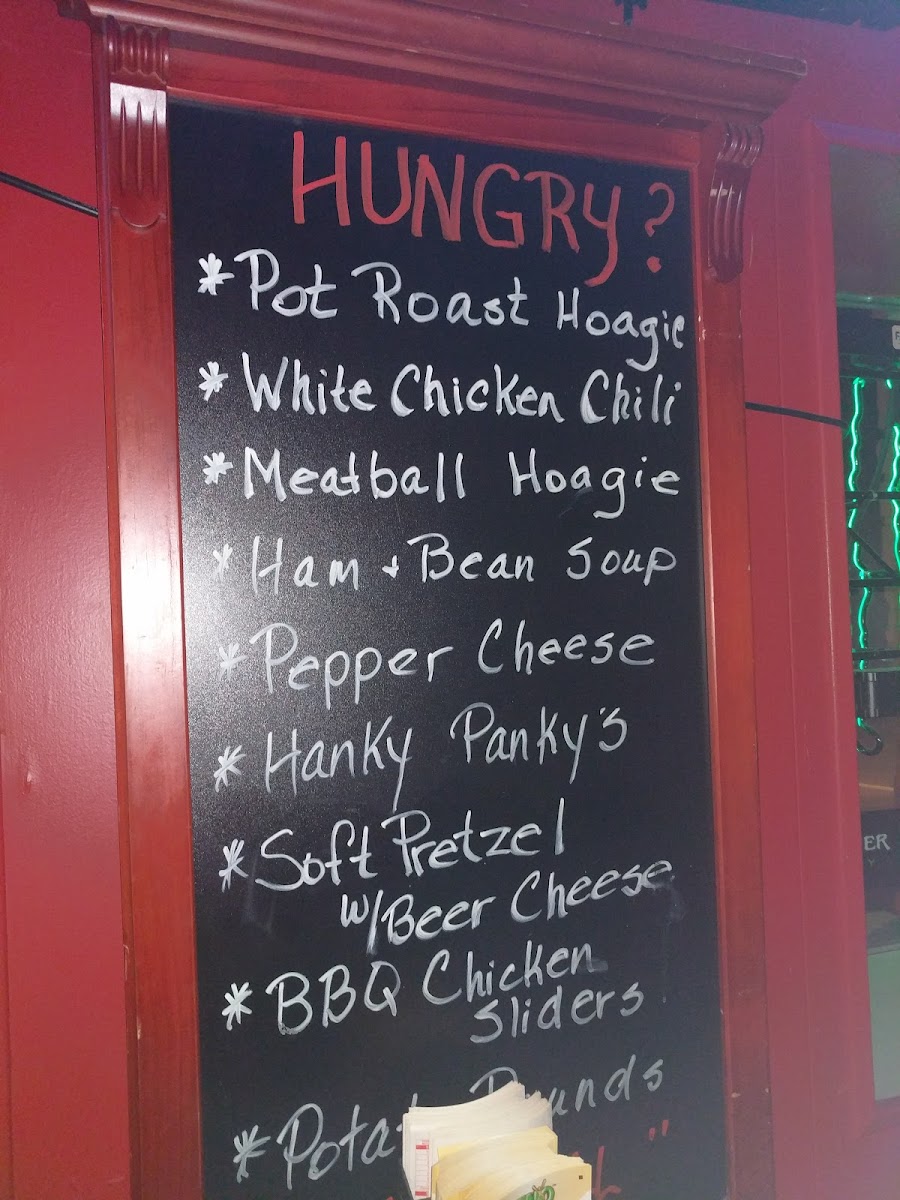 HUNGRY?
*Pot Roast Hoagie
*White Chicken Chili
*Meatball Hoagie
*Ham + Bean Soup
*Pepper Cheese
*Hanky Panky's
*Soft Pretzel
w/Beer Cheese
*BBQ Chicken
Sliders
ER